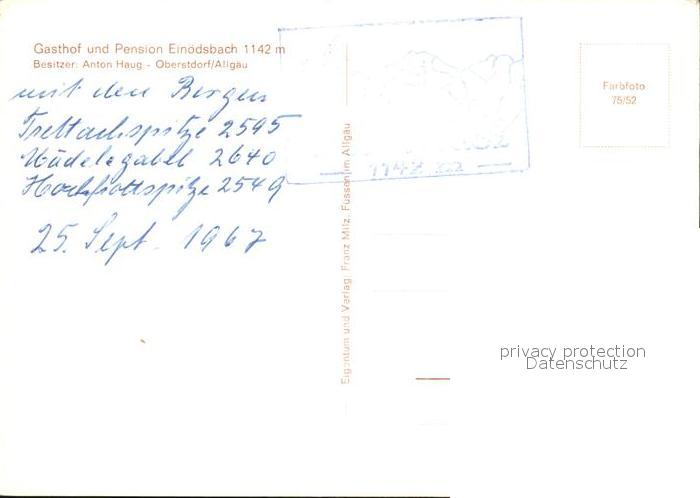 Gasthof und Pension Einödsbach 1142 m
Besitzer: Anton Haug - Oberstdorf/Allgäu
mit den Bergen
Trettachspitze 2595
Mädelegabel 2640
Hochfrottspitze 2549
25. Sept. 1967
1142 m
Eigentum und Verlag: Franz Milz, Füssen im Allgäu
Farbfoto
75/52
privacy protection
Datenschutz